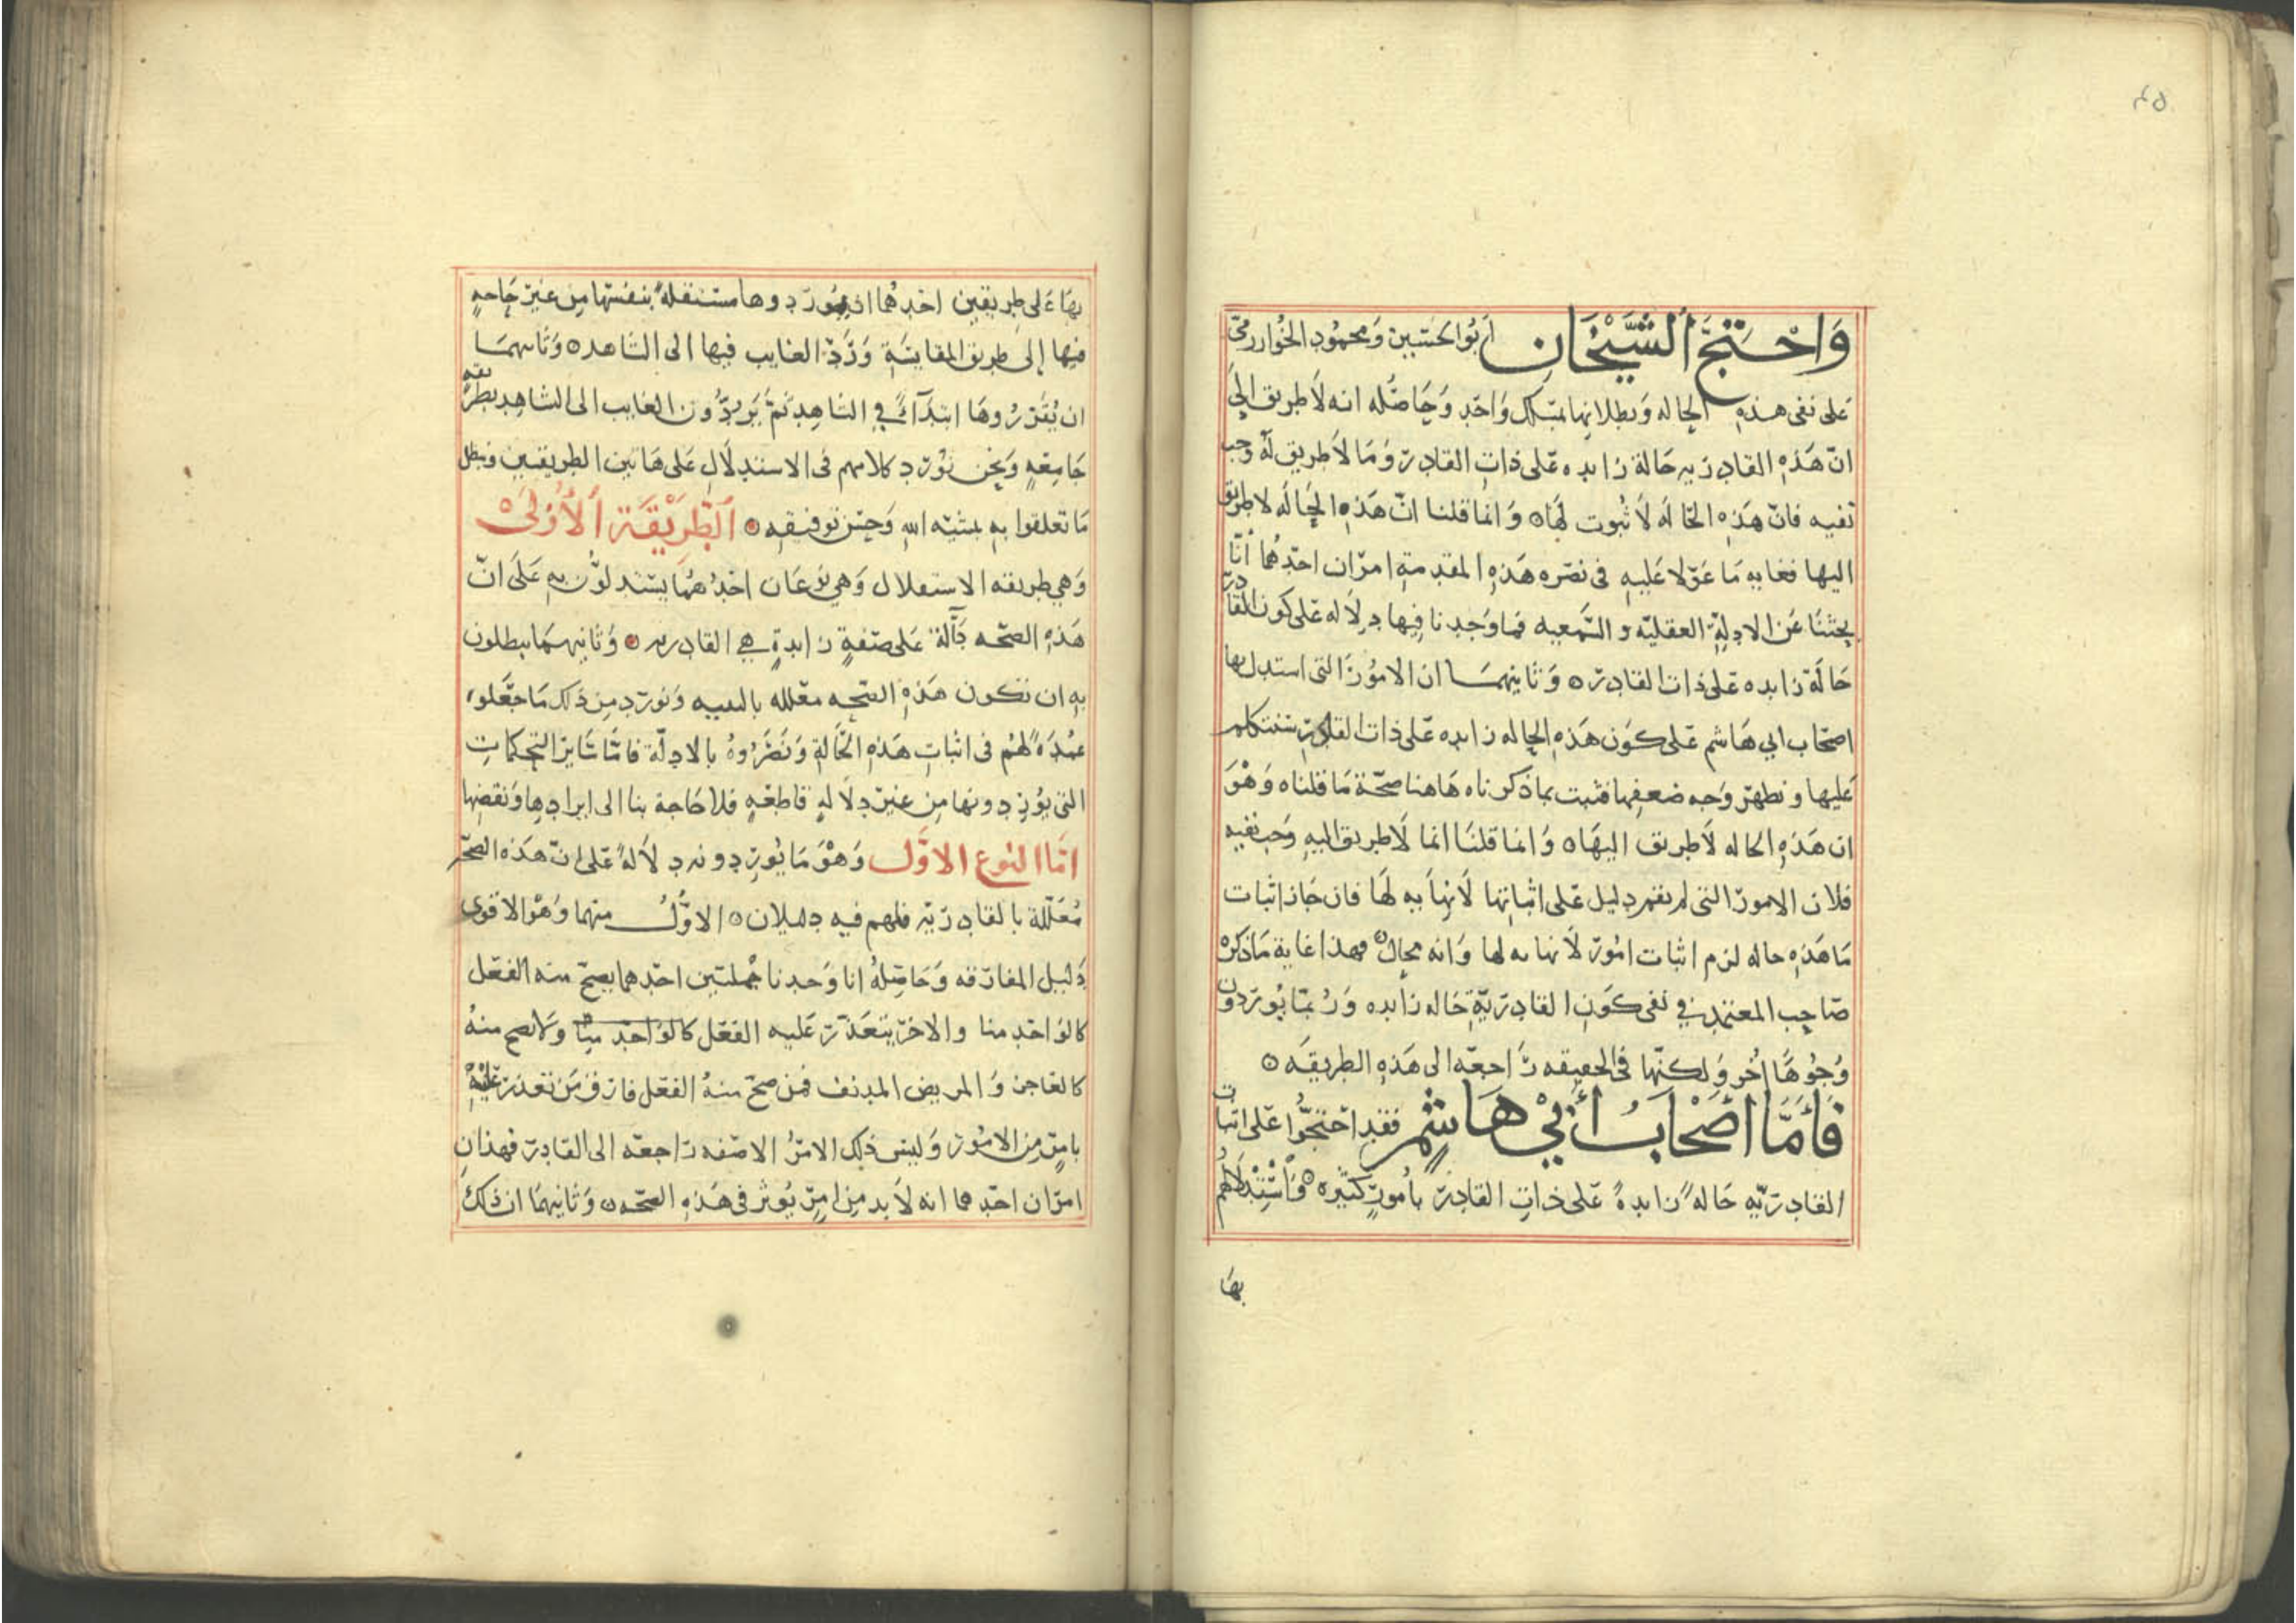 ٤٥
وَاحْتَجَّ الشَّيْخَانِ ابُو الحسين وَمحمُود الخوارزمي
عَلى نفى هذه الحاله وَبطلانها بمسلك وَاحد وَحَاصله انه لَا طريق الى
انّ هَذه القادريه حَالة زايده عَلى ذات القادر وَمَا لَا طريق له وجب
نفيه فانّ هَذه الحَاله لَا ثبوت لهَا ۞ وَانما قلنا انّ هَذه الحَاله لا طريق
اليها فغايه مَا عَوّلا عَليه فى نصره هَذه المقدمة امرَان احدهُما انّا
بحثنَا عَن الادلة العقليّه و السَّمعيه فمَا وَجدنا فيها دلَاله عَلى كون القادر
حَالَة زايده عَلى ذات القادر ۞ وَثانيهمَا ان الامُورَ التى استدل بها
اصحَاب ابي هَاشم عَلى كوَن هَذه الحاله زايده عَلى ذات القادر سنتكلم
عَليها ونظهر وَجه ضعفها فثبت بماذكرناه هَاهنا صحّة مَا قلناه وَهْوَ
ان هَذه الحاله لَا طريق اليهَا ۞ وَانما قلنَا انما لَا طريق اليه وَجب نفيه
فلان الامور التى لم يقم دليل عَلى اثباتها لَا نهايه لهَا فان جَاز اثبات
مَا هَذه حاله لزم اثبات امُور لَا نهايه لها وَانه محال ۞ فهذا غاية مَا ذكره
صَاحب المعتمد في نفى كوَن القادريّة حَاله زايده وَربمَا يُوردون
وُجُوهًا اُخر وَلكنّها فى الحقيقه رَاجعَه الى هَذه الطريقَه ۞
فَأَمَّا أَصْحَابُ أَبِيْ هَاشِمٍ فقد احتجّوا عَلى اثبات
القادريّه حَالهً زايدهً عَلى ذات القادر بأمُورٍ كثيره ۞ وَاسْتِدْلَالهُم
بهَا
بهَا عَلى طريقين احَدهُما ان يوردوها مستقلهً بنفسها مِن غير حَاجهٍ
فيها إلى طريق المقايسَة وَرَدّ الغايب فيها الى الشاهد ۞ وَثانيهمَا
ان يُقَرِّرُوهَا ابتدَآءً في الشاهِد ثمَّ يَردُّون الغايب الى الشاهِد بطريقه
جَامِعَةٍ وَنحن نُورد كلامهم فى الاستدلَالِ عَلى هَاتين الطريقين ونبطل
مَا تعلقوا به بمشيّه الله وَحسن توفيقه ۞ الطَّرِيْقَة الأُوْلَى
وَهي طريقه الاستقلال وَهي نوعَان احَدُهُمَا يستدلوُّن به عَلَى انّ
هَذه الصحّه دَآلّة عَلى صفةٍ زايدةٍ هي القادريه ۞ وَثانيهمَا يبطلون
به ان تكون هَذه الصّحه معَلله بالبنيه وَنورد مِن ذلك مَا جعَلوه
عُمْدَةً لهُم فى اثبات هَذه الحَالةِ وَنَصَرُوهُ بالادلّة فامّا سَاير التحكمات
التى يُوردونها من غير دلَالةٍ قاطعَةٍ فلا حَاجة بنا الى ايرادها وَنقضها
امّا النوع الاوّل وَهْوَ مَا يُوردونه دلَالهً عَلى انّ هَذه الصحّه
مُعَلّلة بالقادريّه فلهم فيه دليلان ۞ الاوّلُ منهما وَهْوَ الاقوى
دَليل المفارقه وَحَاصلهُ انا وَجدنا جُملتين احَدهما يصحّ منه الفعَل
كالوَاحد منا والاخر يتعَذّر عَليه الفعَل ولا يصح منهُ
كالعَاجز وَالمريض المدنف فمن صحّ منهُ الفعَل فارق مَن تعذر عَليْهِ
بامرٍ مِن الامُور وَليس ذلك الامرُ الا صفه رَاجعَه الى القادر فهذان
امرَان احَدهما انه لَابد مِن امرٍ يُوثر فى هَذه الصحّه ۞ وَثانيهمَا ان ذلكَ